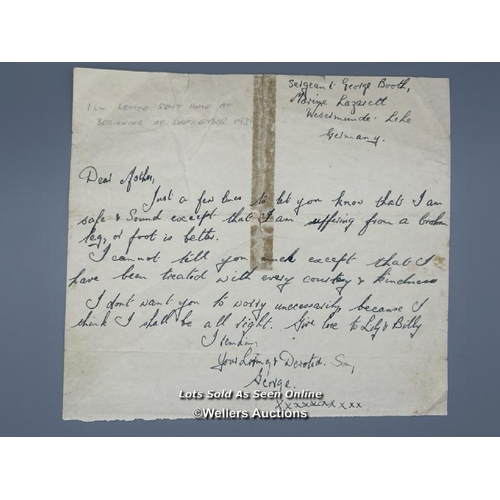 1st LETTER SENT HOME AT
BEGINNING OF SEPTEMBER 193
Sergeant George Booth,
Marine Lazarett
Wesermunde. Lehe
Germany.
Dear Mother,
Just a few lines to let you know that I am
safe & Sound except that I am suffering from a broken
leg, or foot is better.
I cannot tell you much except that I
have been treated with every courtesy & kindness
I dont want you to worry unecessarily because I
think I shall be all right. Give love to Lily & Billy
I remain,
Your Loving & Devoted. Son,
George.
xxxxxxxxxxx
Lots Sold As Seen Online
©Wellers Auctions